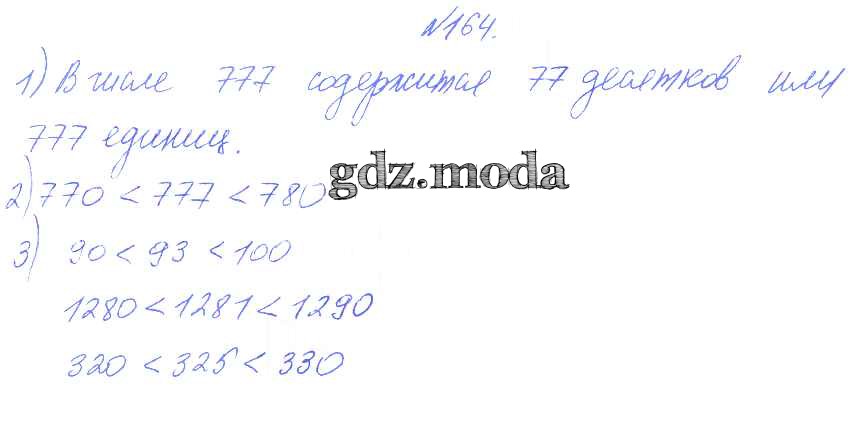 №164.
1) В числе 777 содержится 77 десятков или
777 единиц.
gdz.moda
2) 770 < 777 < 780
3) 90 < 93 < 100
1280 < 1281 < 1290
320 < 325 < 330